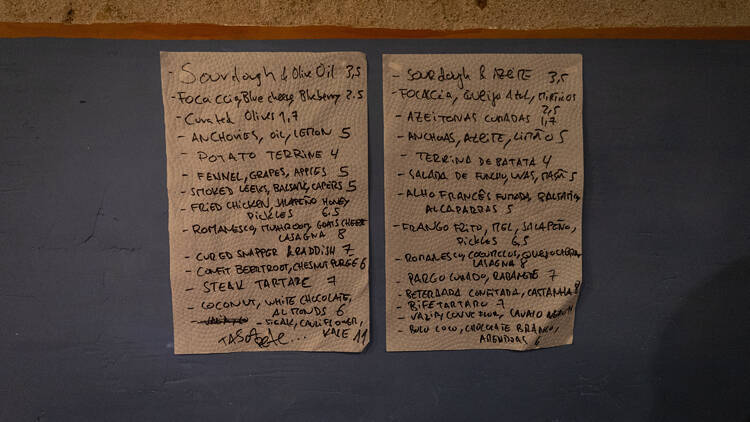 - Sourdough & Olive Oil 3,5
- Focaccia, Blue cheese, Blueberry 2.5
- Curated Olives 1,7
- ANCHOVIES, OIL, LEMON 5
- POTATO TERRINE 4
- FENNEL, GRAPES, APPLES 5
- SMOKED LEEKS, BALSAMIC, CAPERS 5
- FRIED CHICKEN, JALAPEÑO HONEY
PICKLES 6.5
- ROMANESCO, MUSHROOM, GOATS CHEESE
LASAGNA 8
- CURED SNAPPER & RADDISH 7
- CONFIT BEERTROOT, CHESNUT PUREE 6
- STEAK TARTARE 7
- COCONUT, WHITE CHOCOLATE,
ALMONDS 6
- STEAK, CAULIFLOWER,
KALE 11
- SOURdough & AZEITE 3,5
- FOCACCIA, QUEIJO AZUL, MIRTILOS
2,5
- AZEITONAS CURADAS 1,7
- ANCHOVAS, AZEITE, LIMÃO 5
- TERRINA DE BATATA 4
- SALADA DE FUNCHO, UVAS, MAÇÃ 5
- ALHO FRANCÊS FUMADO, BALSAMICO,
ALCAPARRAS 5
- FRANGO FRITO, MEL, JALAPEÑO,
Pickles 6,5
- ROMANESCO, COGUMELOS, QUEIJO CABRA,
LASAGNA 8
- PARGO CURADO, RABANETE 7
- BETERRABA CONFITADA, CASTANHA
- BIFE TARTARO 7
- BOLO COCO, CHOCOLATE BRANCO,
AMENDOAS 6